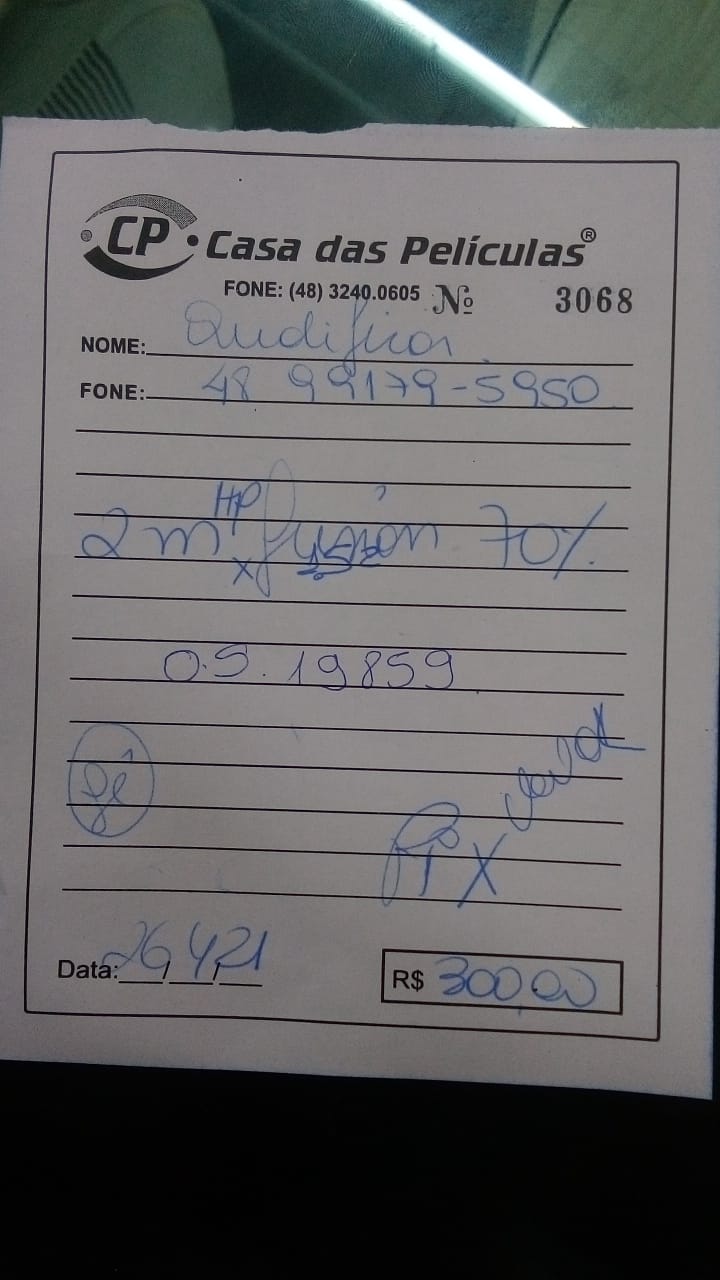 CP Casa das Películas®
FONE: (48) 3240.0605 Nº 3068
NOME:
FONE: 48 99179-5950
HP
2 m fusion 70%
x
O.S. 19859
Gê
PIX
Data: 26/4/21 R$ 300,00